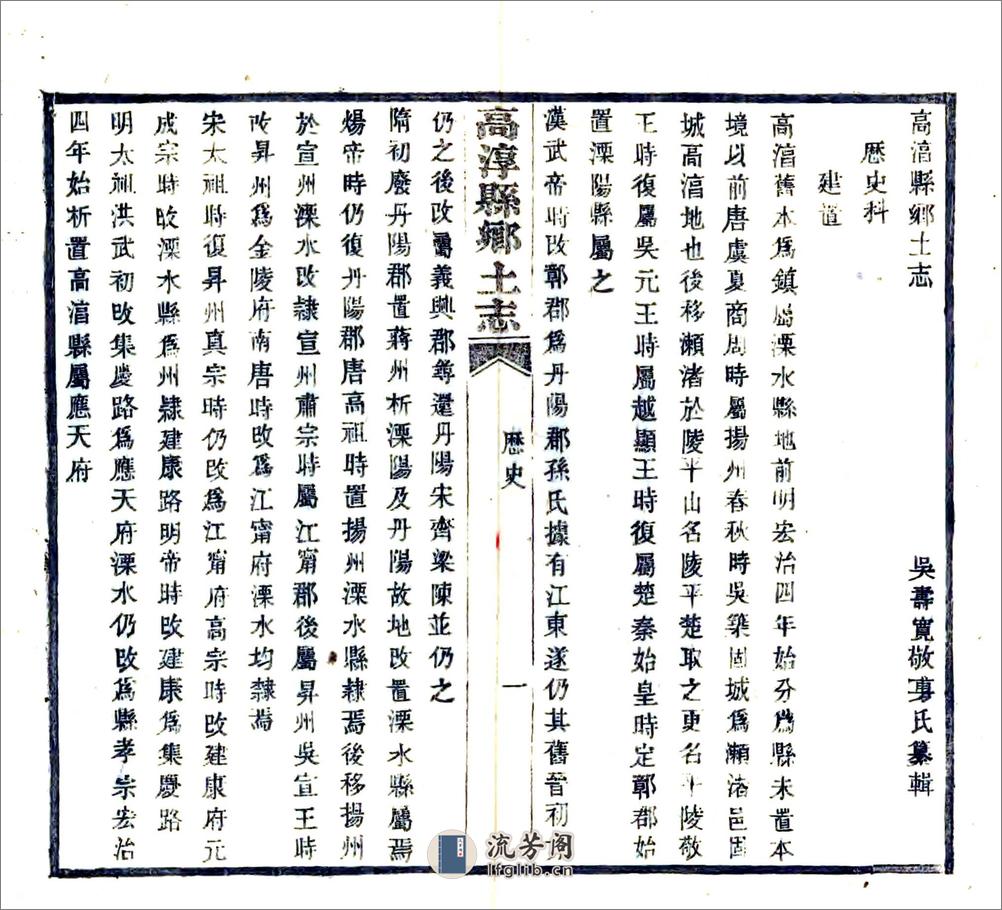 高湻縣鄉土志
吳壽寬敬事氏纂輯
歷史科
建置
高湻舊本爲鎮屬溧水縣地前明宏治四年始分爲縣未置本
境以前唐虞夏商周時屬揚州春秋時吳築固城爲瀨渚邑固
城高湻地也後移瀨渚於陵平山名陵平楚取之更名平陵敬
王時復屬吳元王時屬越顯王時復屬楚秦始皇時定鄣郡始
置溧陽縣屬之
漢武帝時改鄣郡爲丹陽郡孫氏據有江東遂仍其舊晉初
高淳縣鄉土志
歷史
一
仍之後改屬義興郡尋還丹陽宋齊梁陳並仍之
隋初廢丹陽郡置蔣州析溧陽及丹陽故地改置溧水縣屬焉
煬帝時仍復丹陽郡唐高祖時置揚州溧水縣隸焉後移揚州
於宣州溧水改隸宣州肅宗時屬江甯郡後屬昇州吳宣王時
改昇州爲金陵府南唐時改爲江甯府溧水均隸焉
宋太祖時復昇州真宗時仍改爲江甯府高宗時改建康府元
成宗時改溧水縣爲州隸建康路明帝時改建康爲集慶路
明太祖洪武初改集慶路爲應天府溧水仍改爲縣孝宗宏治
四年始析置高湻縣屬應天府
流芳阁
lfglib.cn